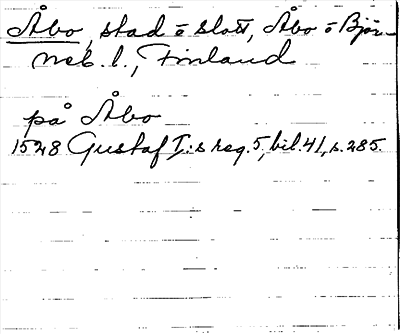 Åbo, stad o slott, Åbo o Björ-
neb. l., Finland
på Åbo
1528 Gustaf I:s reg. 5, bil. 41, s. 285.